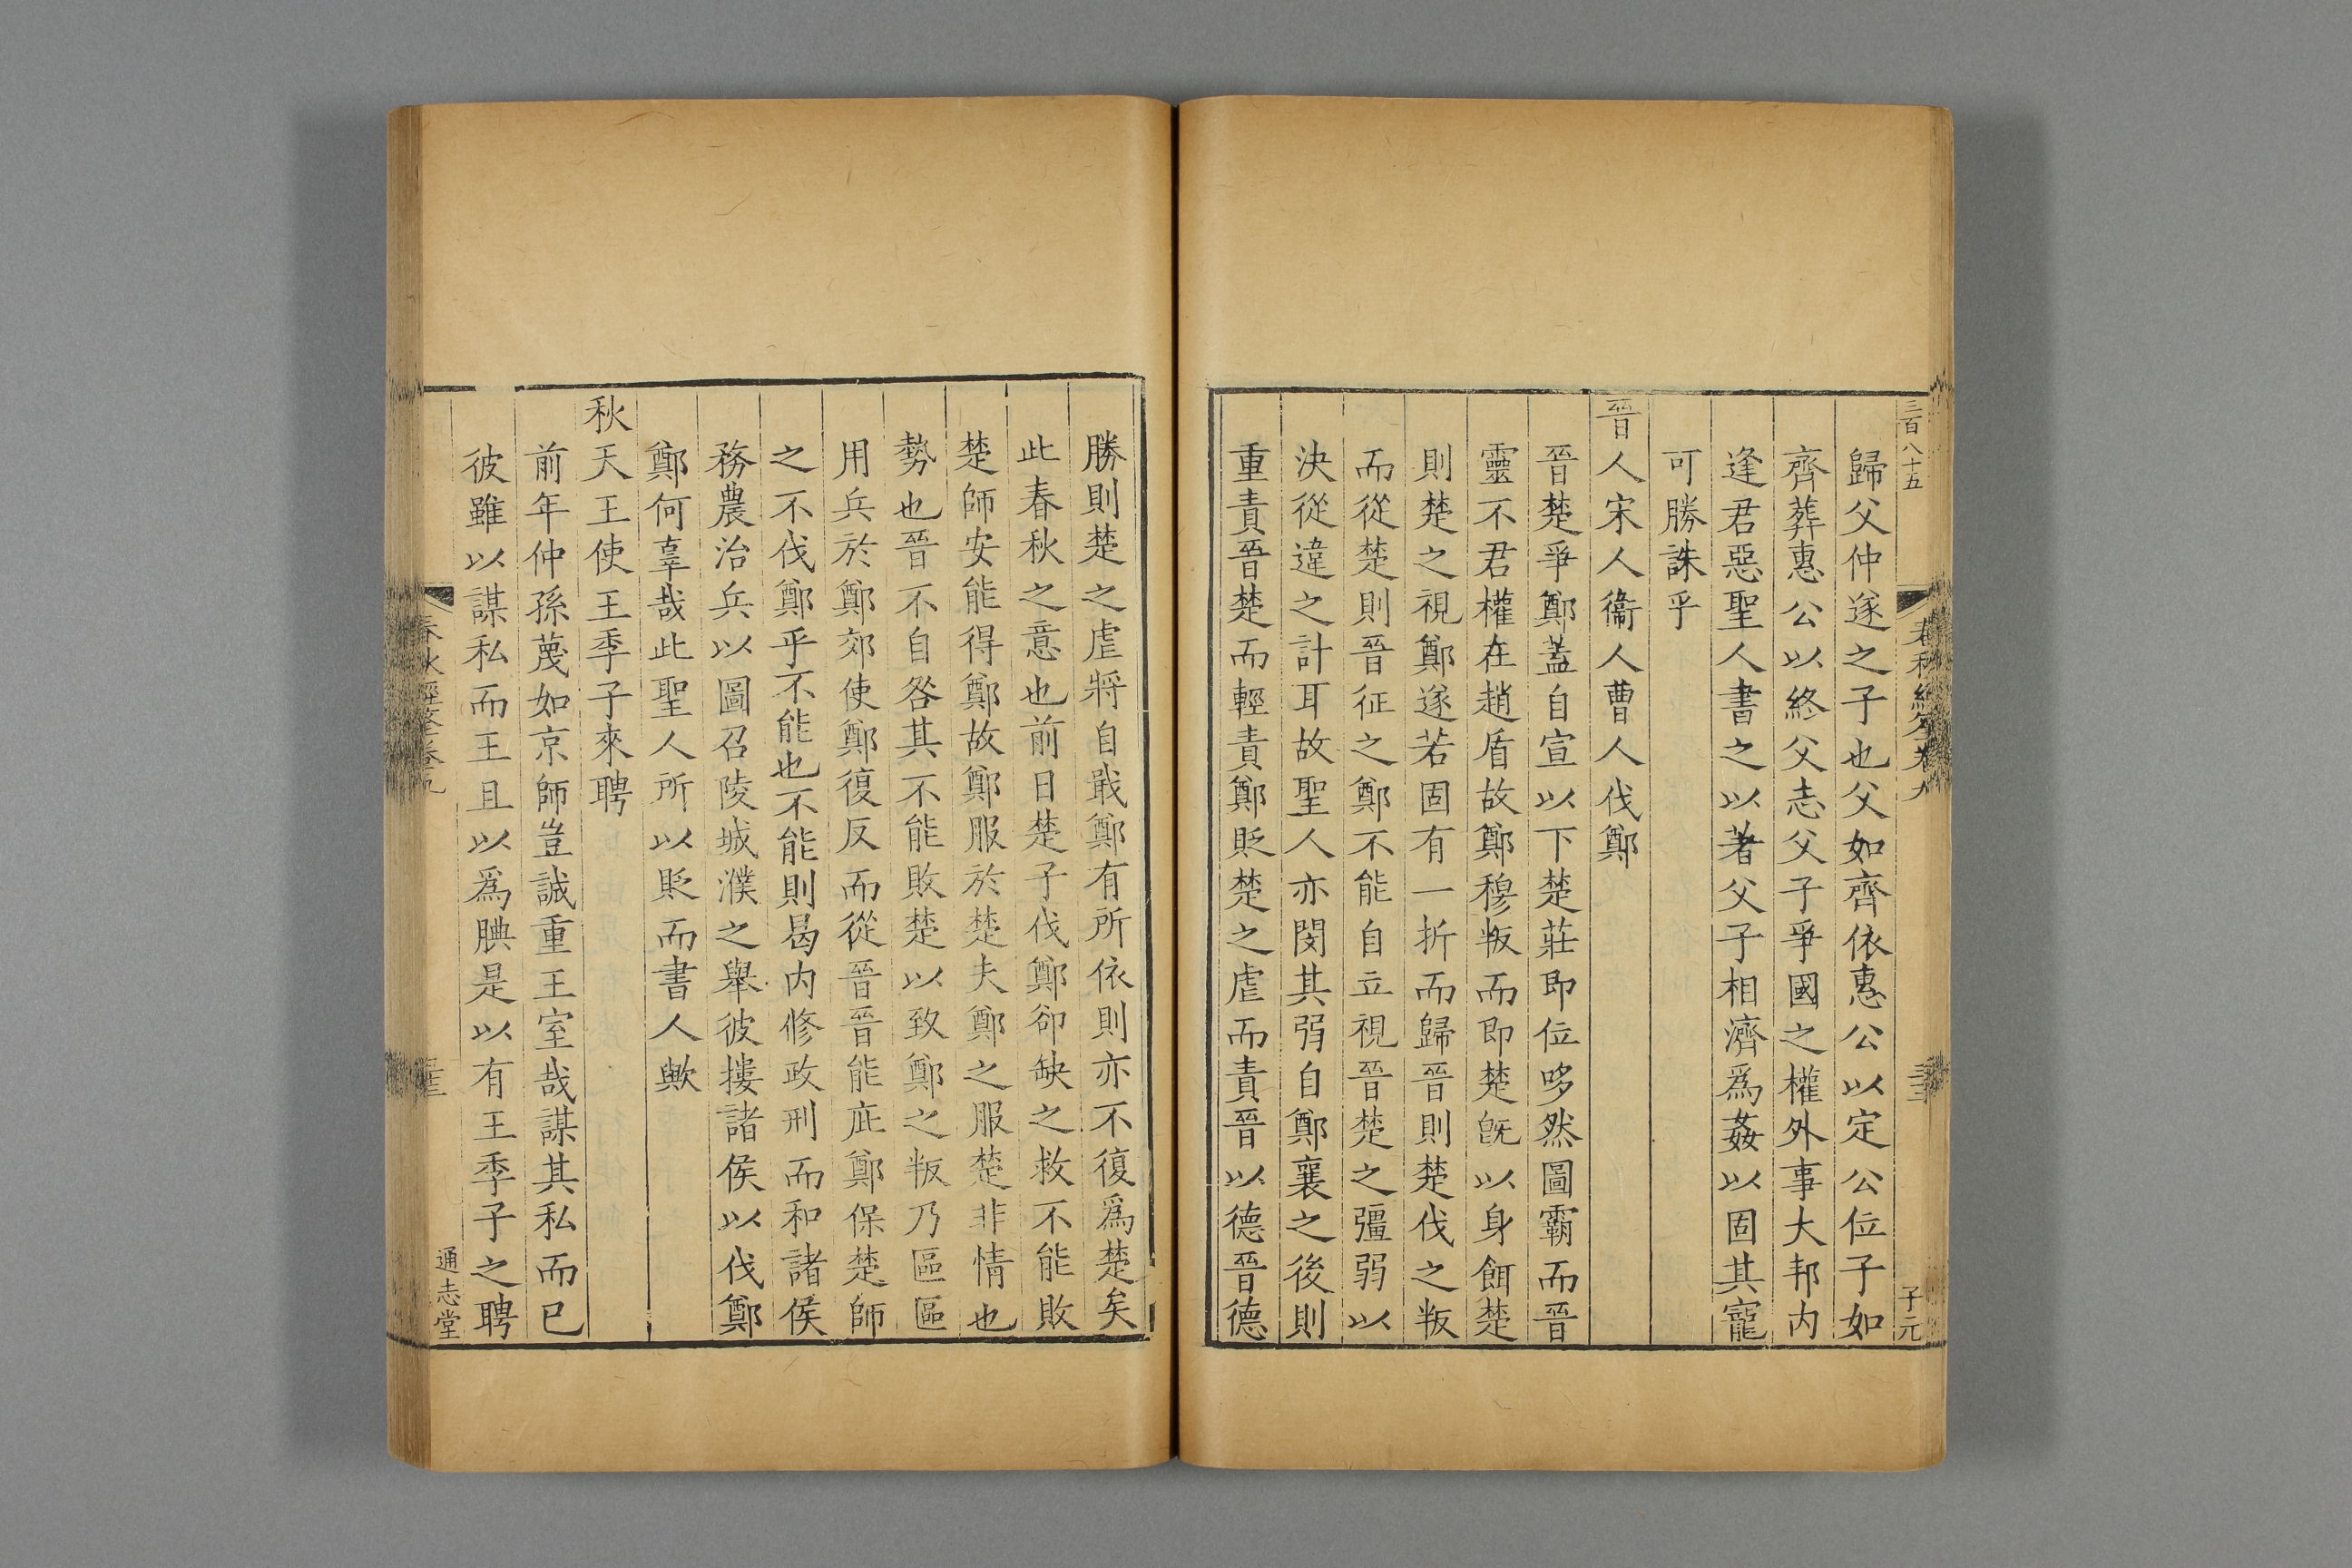 三百八十五
子元
歸父仲遂之子也父如齊依惠公以定公位子如
齊葬惠公以終父志父子爭國之權外事大邦内
逢君惡聖人書之以著父子相濟爲姦以固其寵
可勝誅乎
晉人宋人衞人曹人伐鄭
晉楚爭鄭蓋自宣以下楚莊即位哆然圖霸而晉
靈不君權在趙盾故鄭穆叛而即楚旣以身餌楚
則楚之視鄭遂若固有一折而歸晉則楚伐之叛
而從楚則晉征之鄭不能自立視晉楚之彊弱以
決從違之計耳故聖人亦閔其弱自鄭襄之後則
重責晉楚而輕責鄭貶楚之虐而責晉以德晉德
勝則楚之虐將自戢鄭有所依則亦不復爲楚矣
此春秋之意也前日楚子伐鄭卻缺之救不能敗
楚師安能得鄭故鄭服於楚夫鄭之服楚非情也
勢也晉不自咎其不能敗楚以致鄭之叛乃區區
用兵於鄭郊使鄭復反而從晉晉能庇鄭保楚師
之不伐鄭乎不能也不能則曷内修政刑而和諸侯
務農治兵以圖召陵城濮之舉彼摟諸侯以伐鄭
鄭何辜哉此聖人所以貶而書人歟
秋天王使王季子來聘
前年仲孫蔑如京師豈誠重王室哉謀其私而已
彼雖以謀私而王且以爲腆是以有王季子之聘
春秋經筌卷九
通志堂